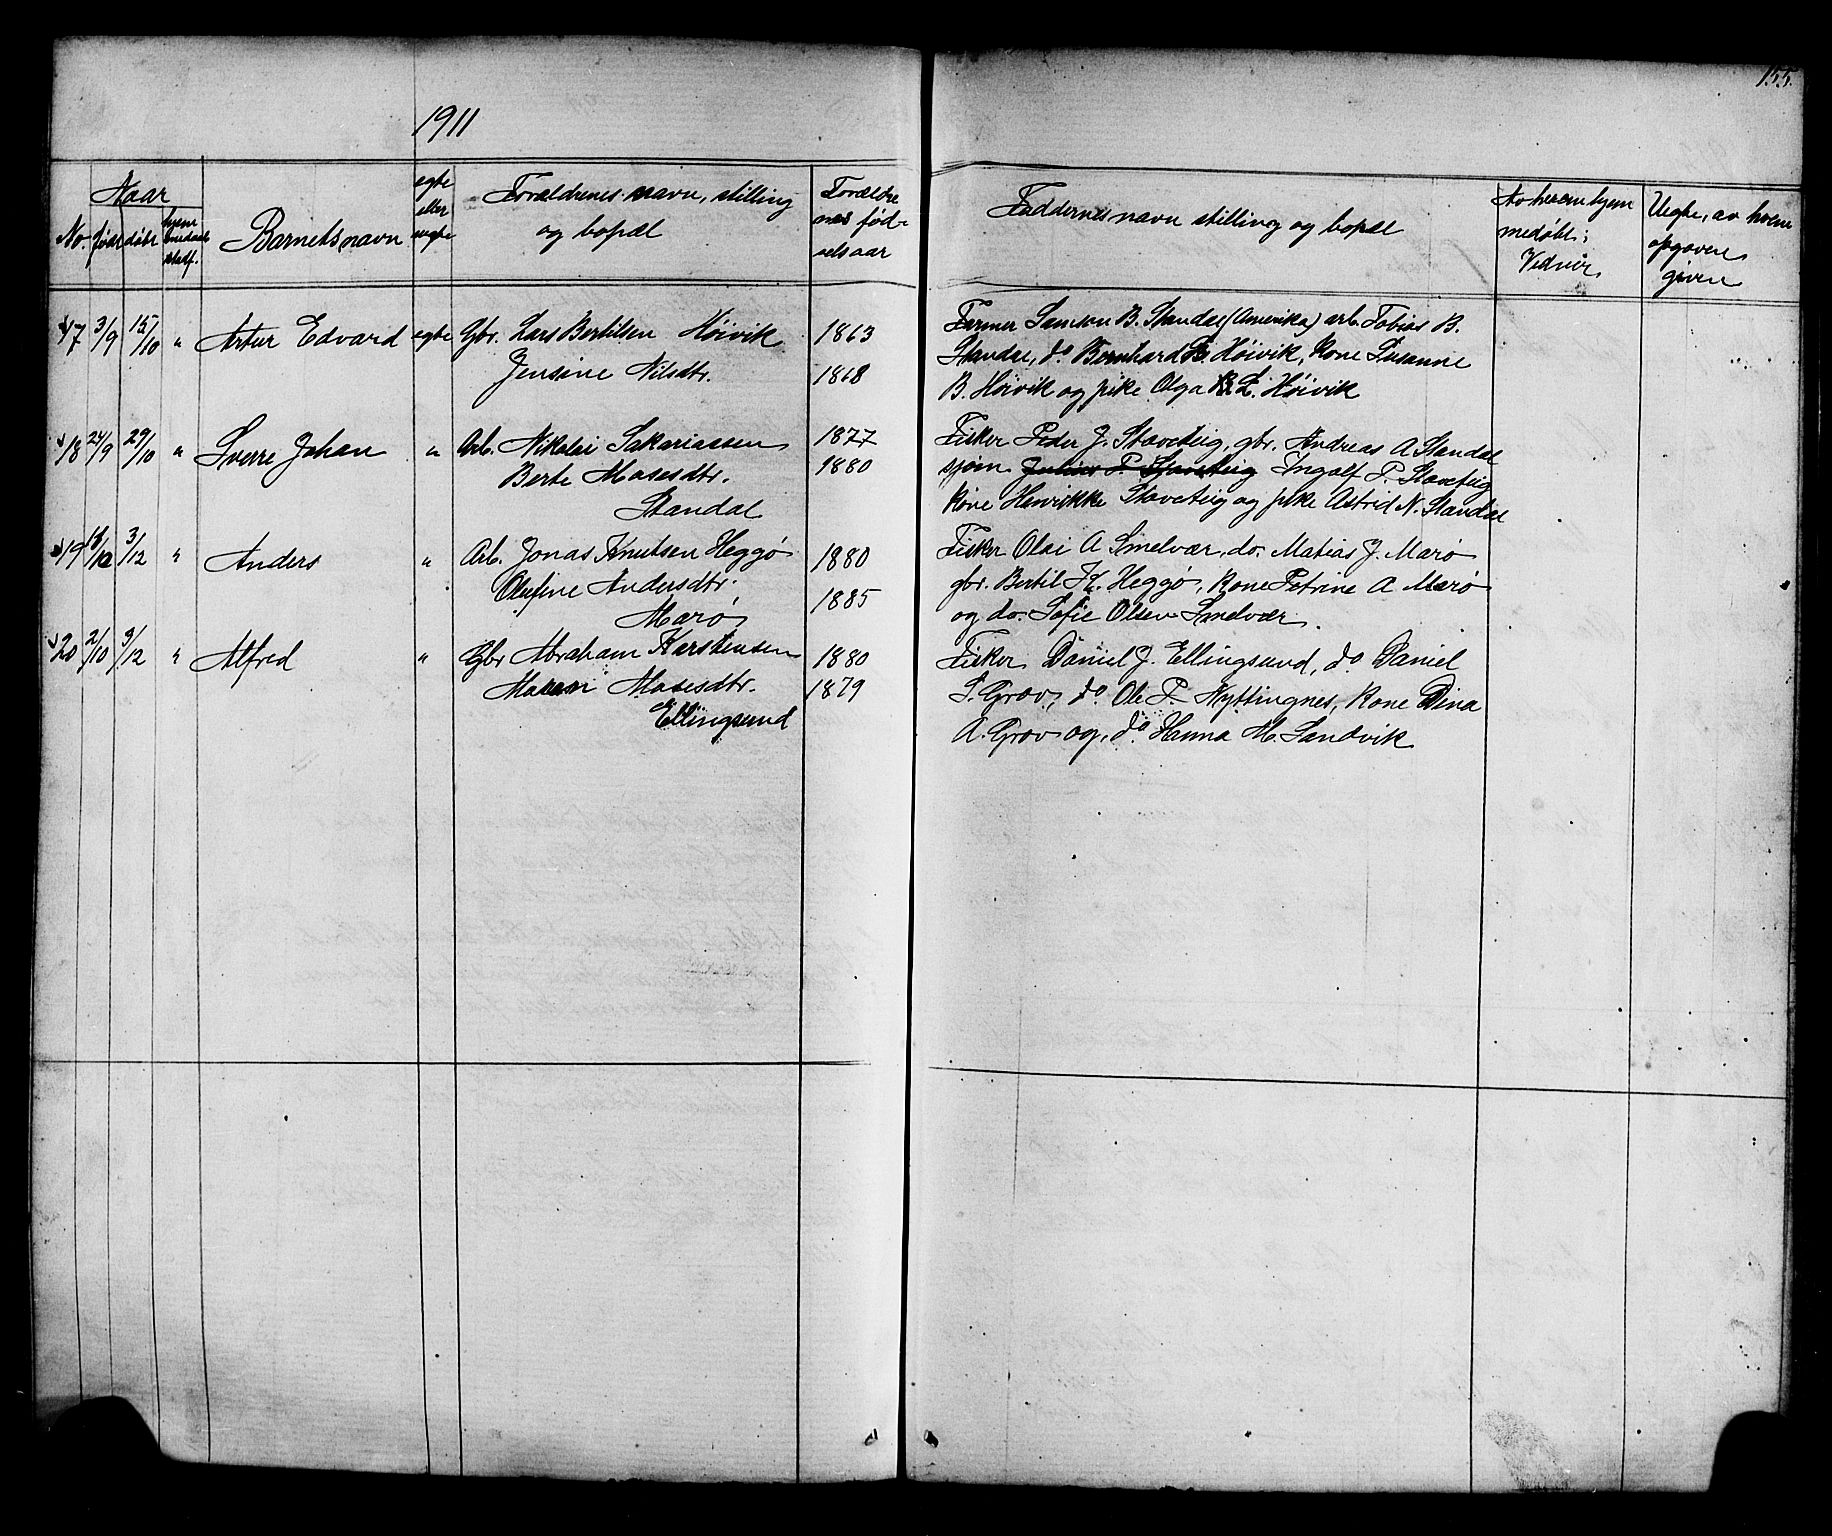 155.
1911
Naar
No. født døbt hjemmedøbt stadf.
Barnets navn
egte eller uegte
Forældrenes navn, stilling og bopæl
Forældrenes fødselsaar
Faddernes navn stilling og bopæl
Av hvem hjemmedøbt; Vedn.
Uegte, av hvem opgaven given
17 3/9 15/10 " Artur Edvard egte Gbr. Lars Bertilsen Høivik 1863
Jensine Nilsdtr. 1868
Farmer Samson B. Standal (Amerika) arb. Tobias B.
Standal, do Bernhard L. Høivik, kone Susanne
B. Høivik og pike Olga L. Høivik
18 24/9 29/10 " Sverre Johan " Arb. Nikolai Sakariassen 1877
Berte Mosesdtr. 1880
Standal
Fisker Peder J. Staveteig, gbr. Andreas A Standal
sjøm Julius P. Staveteig Ingolf P. Staveteig
kone Henrikke Staveteig og pike Astrid N. Standal
19 3/12 " Anders " Arb. Jonas Knutsen Heggø 1880
Olufine Andersdtr. 1885
Marø
Fisker Olai A Smelvær, do. Matias J. Marø
gbr. Bertil K. Heggø, kone Petrine A Marø
og do. Sofie Olsen Smelvær.
20 2/10 3/12 " Alfred " Gbr Abraham Karstensen 1880
Mosesdtr. 1879
Ellingsund
Fisker Daniel J. Ellingsund, do Daniel
S. Grov, do Ole P. Nyttingnes, kone Dina
A. Grov og, do Hanna M. Sandvik